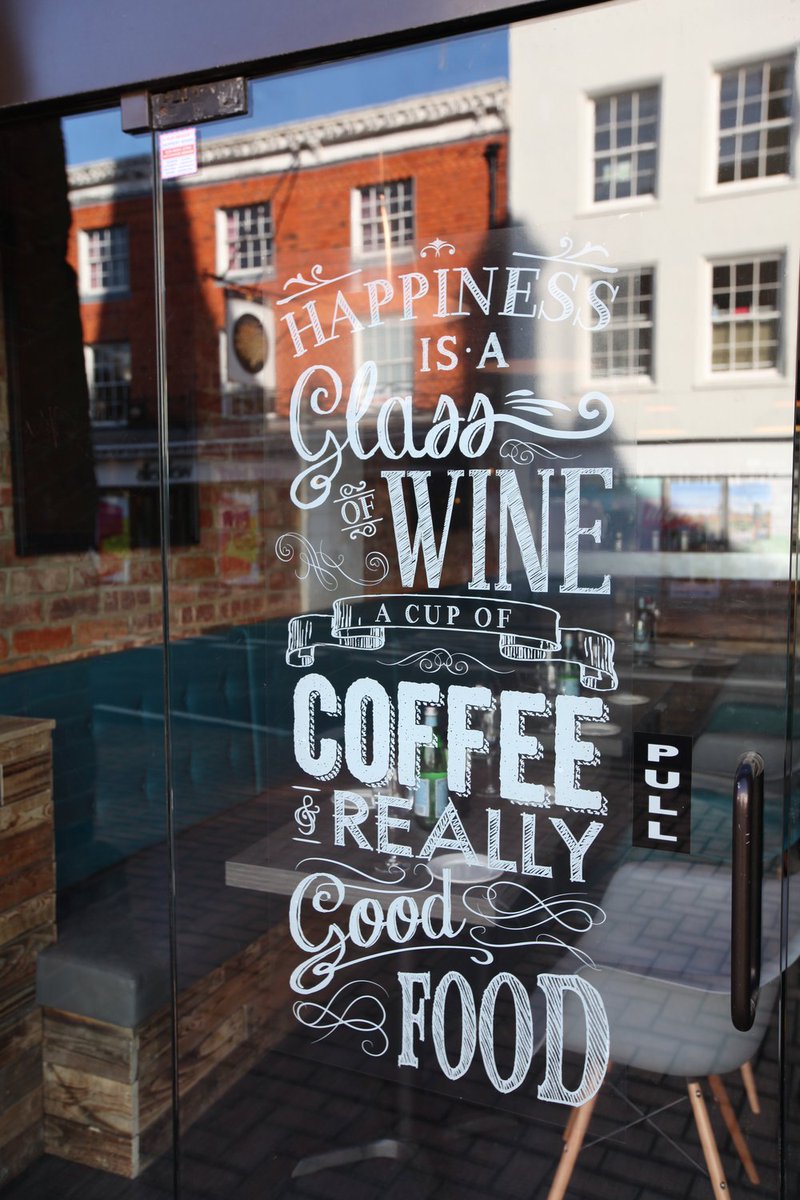 HAPPINESS
IS·A
Glass
OF WINE
A CUP OF
COFFEE
& REALLY
Good
FOOD
PULL